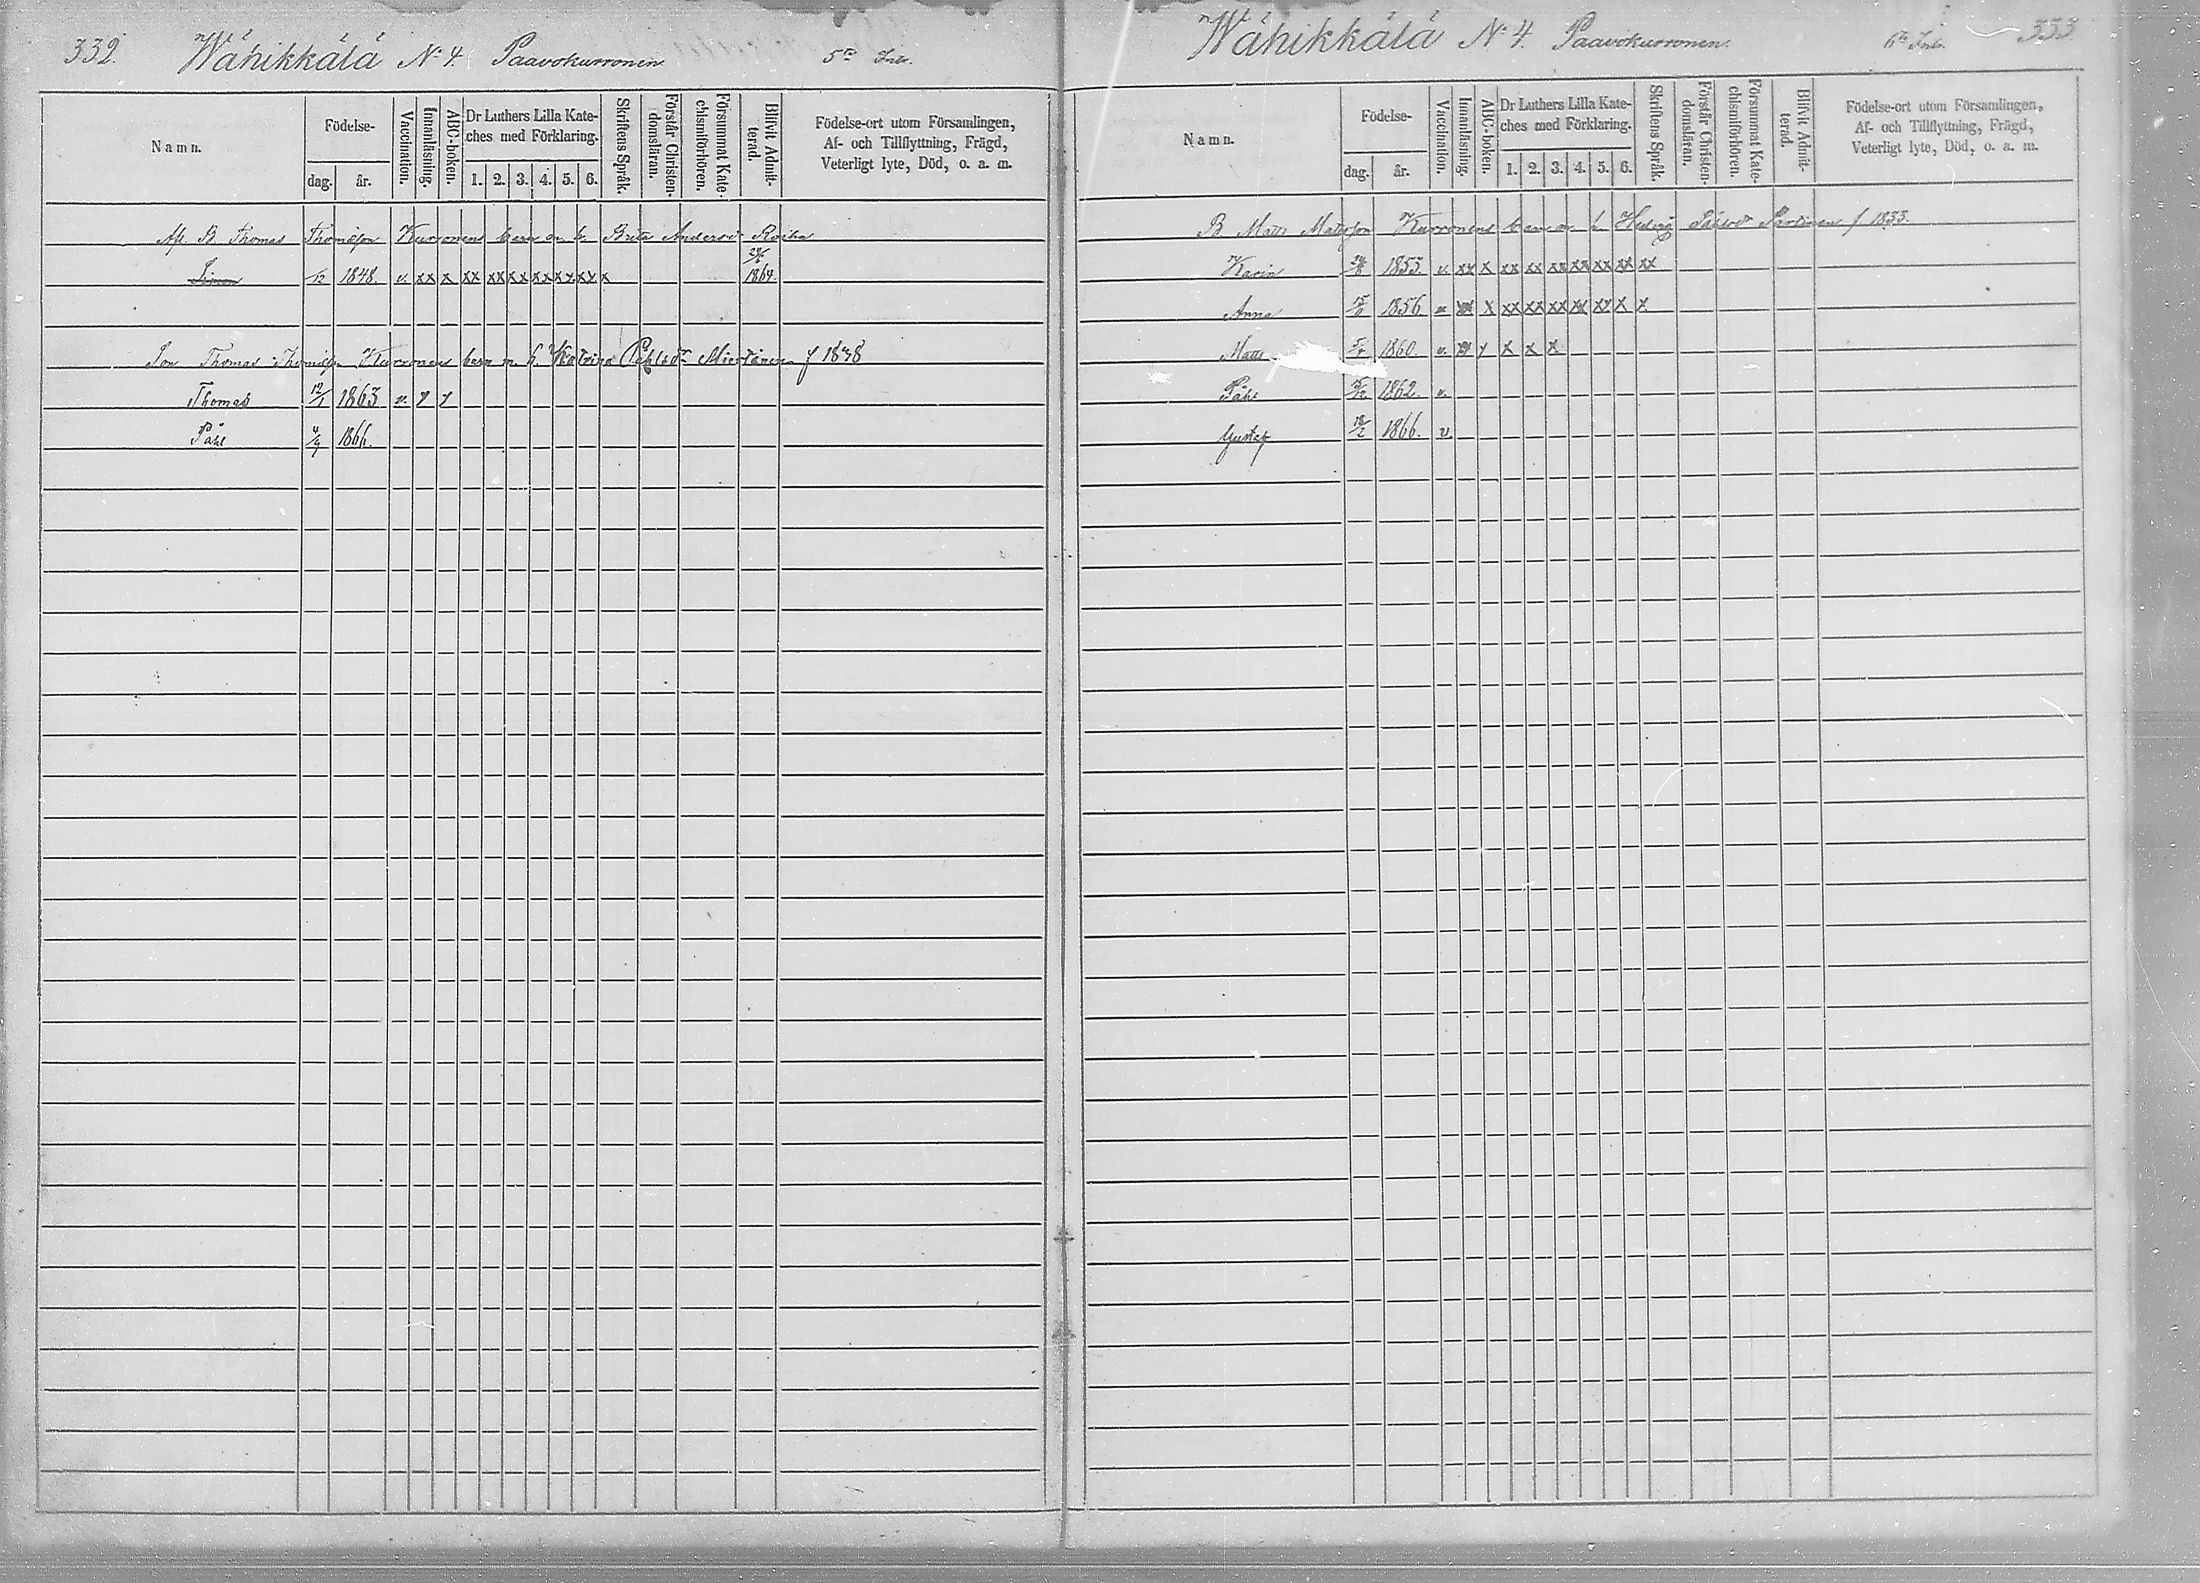 332.
Wähikkälä N:4. Paavokurronen 5te Inh.
Namn.
Födelse-
dag. år.
Vaccination.
Innanläsning.
ABC-boken.
Dr Luthers Lilla Kate-
ches med Förklaring.
1. 2. 3. 4. 5. 6.
Skriftens Språk.
Förstår Christen-
domsläran.
Försummat Kate-
chismiförhören.
Blifvit Admit-
terad.
Födelse-ort utom Församlingen,
Af- och Tillflyttning, Frägd,
Veterligt lyte, Död, o. a. m.
Afl. B. Thomas Thomasson Kurronens barn m. h. Brita Andersdr Roiha
Simon /12 1848. v. xx x xx xx xx xx xx xx x 1864
Son Thomas Thomasson Kurronens barn m. h. Katrina Påhlsdr f 1838
Thomas 12/1 1863 v. y y
Påhl 4/9 1866.
Wähikkälä N:4. Paavokurronen. 6te Inh. 333
Namn.
Födelse-
dag. år.
Vaccination.
Innanläsning.
ABC-boken.
Dr Luthers Lilla Kate-
ches med Förklaring.
1. 2. 3. 4. 5. 6.
Skriftens Språk.
Förstår Christen-
domsläran.
Försummat Kate-
chismiförhören.
Blifvit Admit-
terad.
Födelse-ort utom Församlingen,
Af- och Tillflyttning, Frägd,
Veterligt lyte, Död, o. a. m.
B. Matts Mattsson Kurronens barn m. h. Hedvig Påhlsdr f 1833.
Karin 1853. v. xx x xx xx xx xx xx xx xx
Anna 1856 xx x xx xx xx xx xx x x
Matts 1860. v. y x x x
Påhl 1862. v.
Gustaf 1866. v.